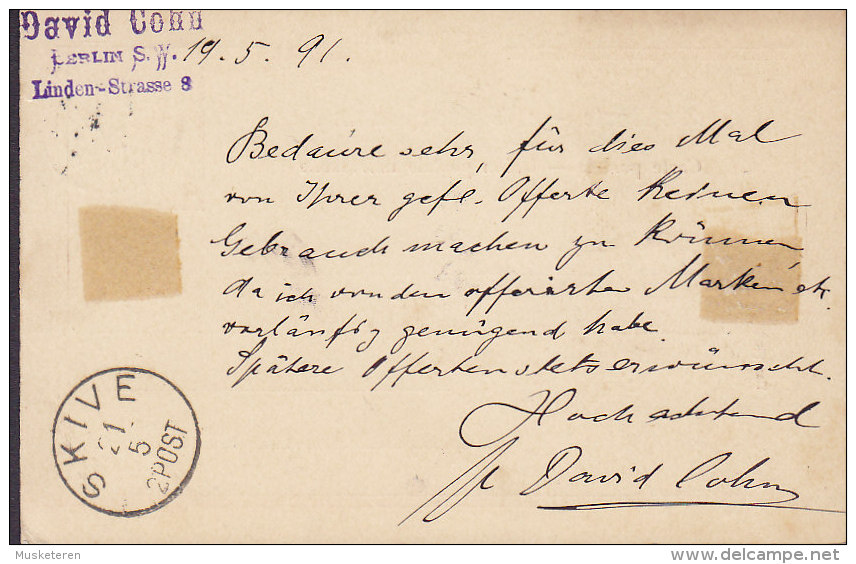 David Cohn
BERLIN S. W. 19. 5. 91.
Linden-Strasse 8
Bedaure sehr, für dies Mal
von Ihrer gefl. Offerte keinen
Gebrauch machen zu können
da ich von den offerirten Marken etc.
vorläufig genügend habe.
Spätere Offerten stets erwünscht.
Hochachtend
David Cohn
SKIVE
21
5
2POST
Musketeren
delcampe.net